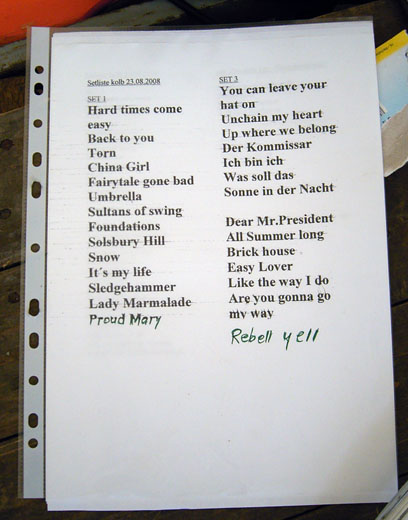 Setliste kolb 23.08.2008
SET 1
Hard times come
easy
Back to you
Torn
China Girl
Fairytale gone bad
Umbrella
Sultans of swing
Foundations
Solsbury Hill
Snow
It´s my life
Sledgehammer
Lady Marmalade
Proud Mary
SET 3
You can leave your
hat on
Unchain my heart
Up where we belong
Der Kommissar
Ich bin ich
Was soll das
Sonne in der Nacht
Dear Mr.President
All Summer long
Brick house
Easy Lover
Like the way I do
Are you gonna go
my way
Rebell yell